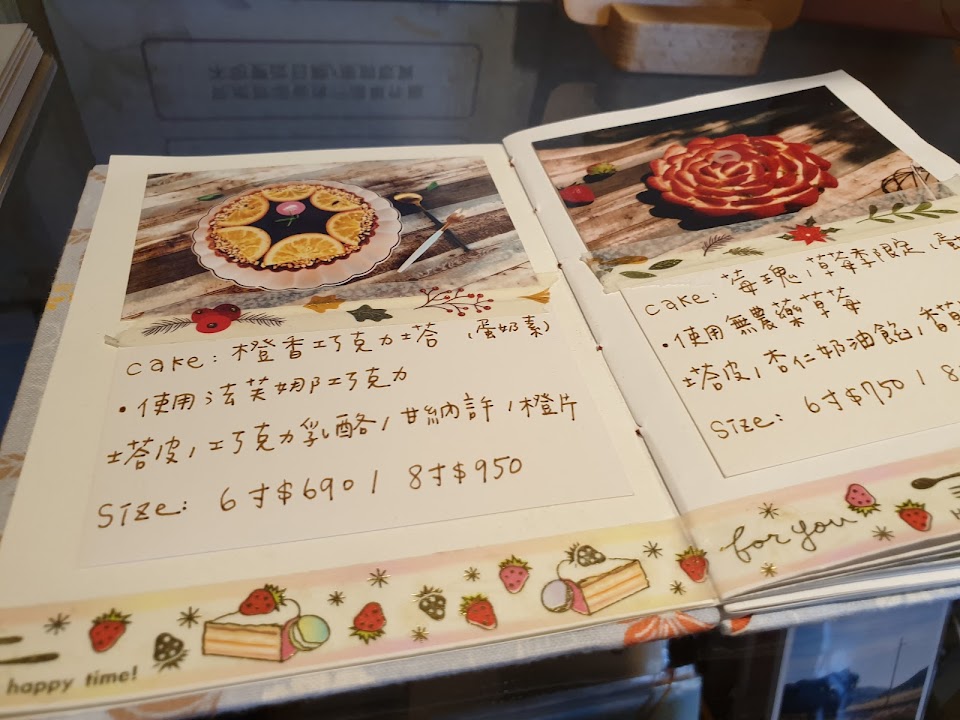 cake: 橙香巧克力塔 (蛋奶素)
• 使用法芙娜巧克力
塔皮/巧克力乳酪/甘納許/橙片
Size: 6寸$690/ 8寸$950
happy time!
cake: 莓瑰/草莓季限定
• 使用無農藥草莓
塔皮/杏仁奶油餡/香
Size: 6寸$750 / 8
for you